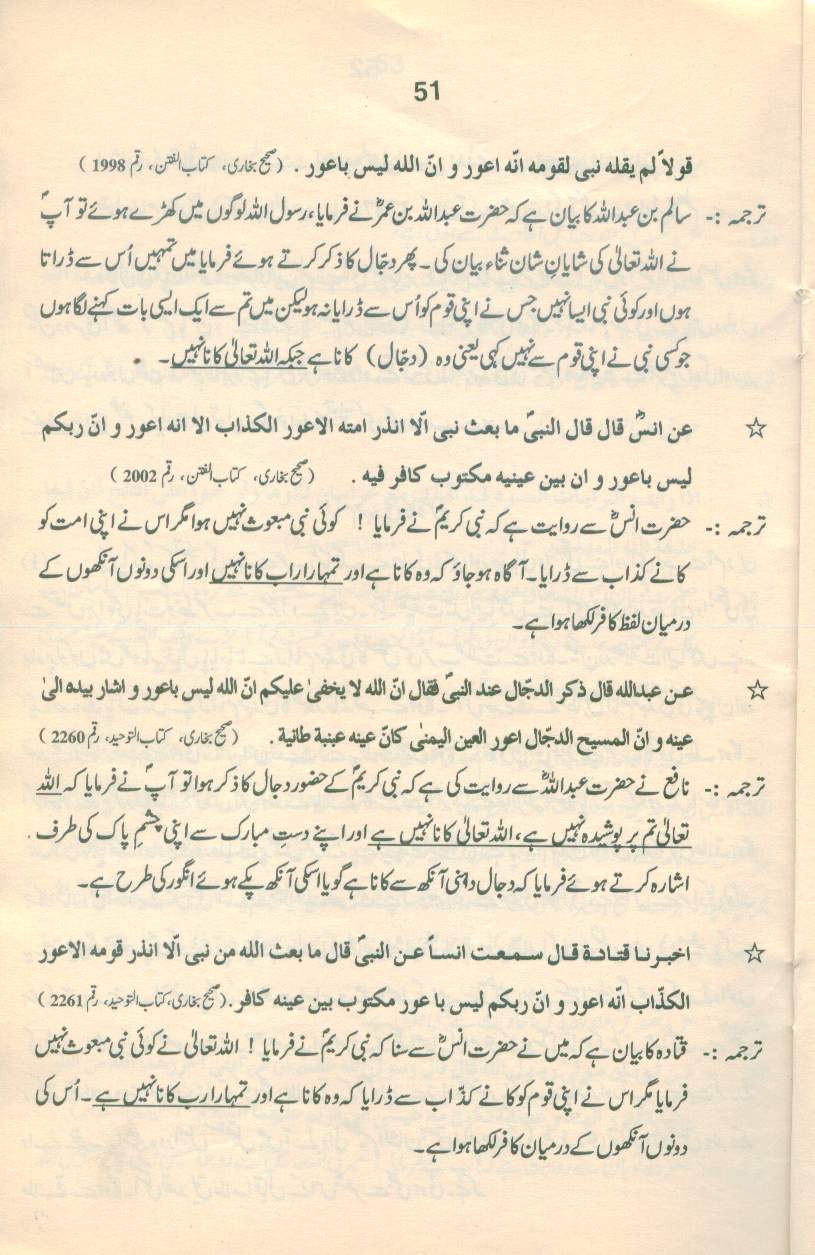 51
قولاً لم یقله نبی لقومه انّه اعور و انّ الله لیس باعور . (صحیح بخاری، کتاب الفتن، رقم 1998)
ترجمہ :- سالم بن عبداللہ کا بیان ہے کہ حضرت عبداللہ بن عمرؓ نے فرمایا، رسول اللہ لوگوں میں کھڑے ہوئے تو آپؐ
نے اللہ تعالیٰ کی شایانِ شان ثناء بیان کی ۔ پھر دجّال کا ذکر کرتے ہوئے فرمایا میں تمہیں اُس سے ڈراتا
ہوں اور کوئی نبی ایسا نہیں جس نے اپنی قوم کو اُس سے ڈرایا نہ ہو لیکن میں تم سے ایک ایسی بات کہنے لگا ہوں
جو کسی نبی نے اپنی قوم سے نہیں کہی یعنی وہ (دجّال) کانا ہے جبکہ اللہ تعالیٰ کانا نہیں ۔
☆ عن انسؓ قال قال النبیؐ ما بعث نبی الّا انذر امته الاعور الکذاب الا انه اعور و انّ ربکم
لیس باعور و ان بین عینیه مکتوب کافر فیه . (صحیح بخاری، کتاب الفتن، رقم 2002)
ترجمہ :- حضرت انسؓ سے روایت ہے کہ نبی کریمؐ نے فرمایا ! کوئی نبی مبعوث نہیں ہوا مگر اس نے اپنی امت کو
کانے کذاب سے ڈرایا۔ آگاہ ہو جاؤ کہ وہ کانا ہے اور تمہارا رب کانا نہیں اور اسکی دونوں آنکھوں کے
درمیان لفظ کافر لکھا ہوا ہے۔
☆ عن عبدالله قال ذکر الدجّال عند النبیؐ فقال انّ الله لا یخفیٰ علیکم انّ الله لیس باعور و اشار بیده الیٰ
عینه و انّ المسیح الدجّال اعور العین الیمنٰی کانّ عینه عنبة طانیة . (صحیح بخاری، کتاب التوحید، رقم 2260)
ترجمہ :- نافع نے حضرت عبداللہؓ سے روایت کی ہے کہ نبی کریمؐ کے حضور دجال کا ذکر ہوا تو آپؐ نے فرمایا کہ اللہ
تعالیٰ تم پر پوشیدہ نہیں ہے، اللہ تعالیٰ کانا نہیں ہے اور اپنے دستِ مبارک سے اپنی چشمِ پاک کی طرف
اشارہ کرتے ہوئے فرمایا کہ دجال داہنی آنکھ سے کانا ہے گویا اسکی آنکھ پکے ہوئے انگور کی طرح ہے۔
☆ اخبرنا قتادة قال سمعت انساً عن النبیؐ قال ما بعث الله من نبی الّا انذر قومه الاعور
الکذّاب انّه اعور و انّ ربکم لیس با عور مکتوب بین عینه کافر . (صحیح بخاری، کتاب التوحید، رقم 2261)
ترجمہ :- قتادہ کا بیان ہے کہ میں نے حضرت انسؓ سے سنا کہ نبی کریمؐ نے فرمایا ! اللہ تعالیٰ نے کوئی نبی مبعوث نہیں
فرمایا مگر اس نے اپنی قوم کو کانے کذّاب سے ڈرایا کہ وہ کانا ہے اور تمہارا رب کانا نہیں ہے ۔ اُس کی
دونوں آنکھوں کے درمیان کافر لکھا ہوا ہے۔